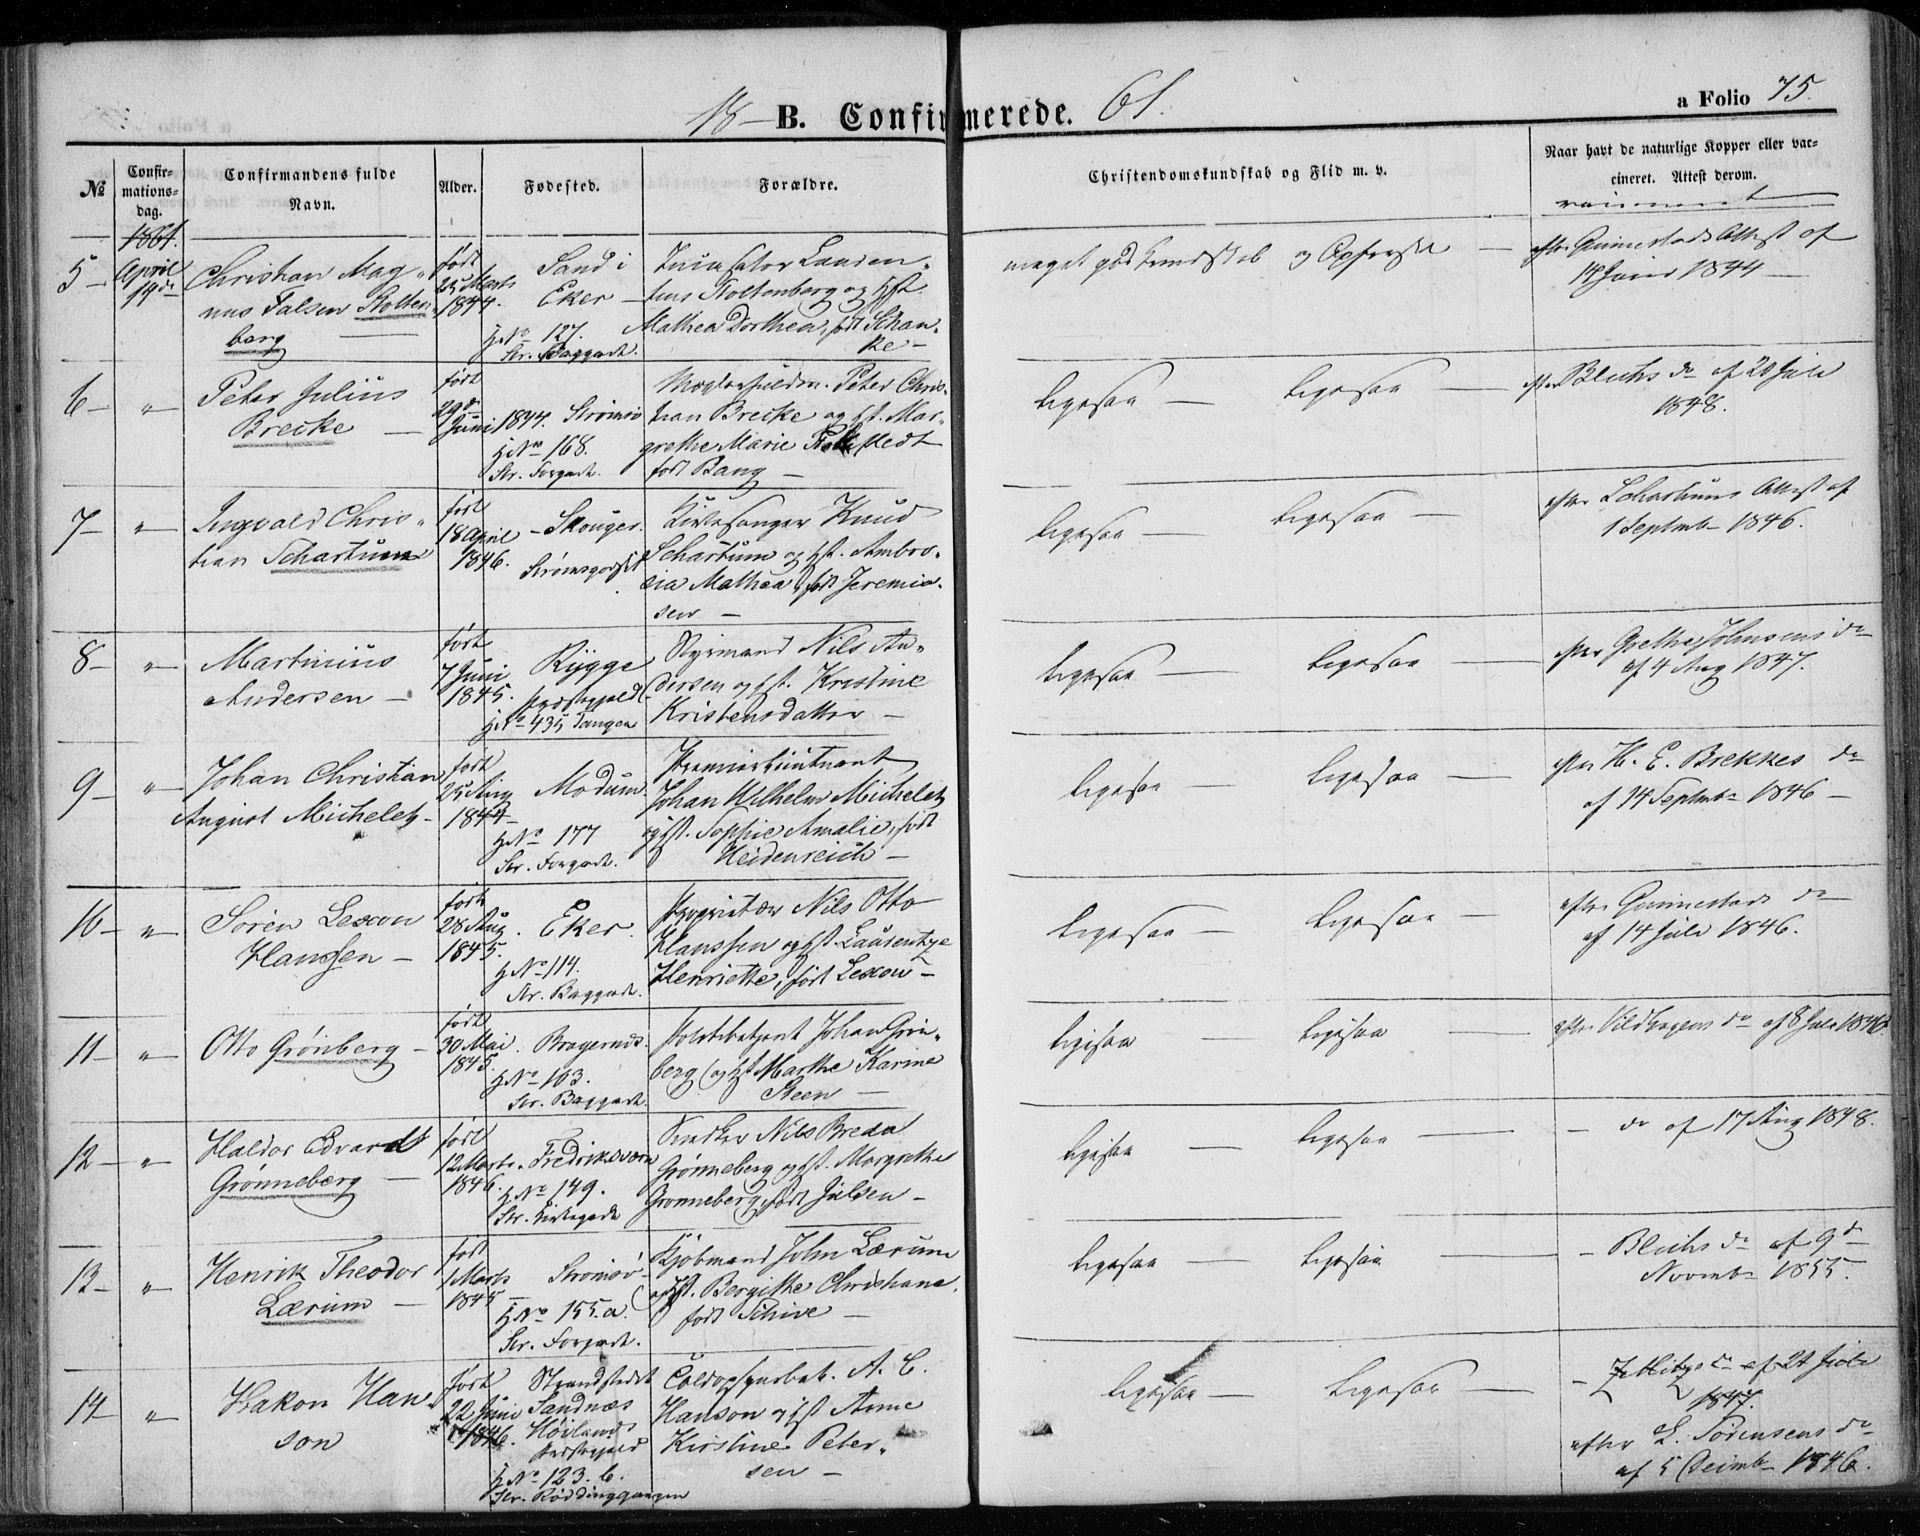 18 — B. Confirmerede. 61.
a Folio 75.
№
Confirmationsdag.
Confirmandens fulde Navn.
Alder.
Fødested.
Forældre.
Christendomskundskab og Flid m. v.
Naar havt de naturlige Kopper eller vaccineret. Attest derom.
1861.
5 — April 14de
Christian Mag-
nus Falsen Stolten-
berg
født
25 Marts
1844.
Sand i
Eker —
HNo 127.
Str. Baggade.
Lauren-
tius Stoltenberg og Hst.
Mathea Dorthea, født Schan-
ke —
meget god Kundskab og Opførsel —
efter Gunnestads Attest af
14 Juni 1844 —
6 — "
Peter Julius
Brecke —
født
29de
Juni 1844. Strømsø
HNo 168.
Str. Forgade.
Peter Chris-
tian Brecke og Hst. Mar-
grethe Marie
født Bang —
Ligesaa — Ligesaa —
efter Blichs do af 20 Juli
1848.
7 — "
Ingvald Chris-
tian Schartum
født
18 April
1846.
- Skouger.
Strømsgodset
Kirkesanger Knud
Schartum og Hst. Ambro-
sia Mathea, født Jeremia-
sen —
Ligesaa — Ligesaa —
efter Schartums Attest af
1 Septmbr 1846.
8 — "
Martinius
Andersen —
født
7 Juni
1845.
Rygge
Præstegjeld
HNo 435 Tangen
Styrmand Nils An-
dersen og Hst. Kristine
Kristensdatter —
Ligesaa — Ligesaa —
efter Grethe Johnsens do
af 4 Aug 1847.
9 — "
Johan Christian
August Michelet —
født
25 Aug
1844
Modum
HNo 177
Str. Forgade.
Premierlieutnant
Johan Wilhelm Michelet
og Hst. Sophie Amalie, født
Heidenreich —
Ligesaa — Ligesaa —
efter H. E. Brekkes do
af 14 Septmbr 1846 —
10 — "
Søren Lexow
Hanssen —
født
28 Aug.
1845.
Eker.
HNo 114.
Str. Baggade.
Proprietær Nils Otto
Hanssen og Hst. Laurentze
Henriette, født Lexow —
Ligesaa — Ligesaa —
efter Gunnestads do
af 14 Juli 1846.
11 — "
Otto Grønberg —
født
30 Mai
1845.
Bragernæs.
HNo 103.
Str. Baggade.
Politibetjent Johan Grøn-
berg og Hst. Marthe Karine
Steen —
Ligesaa — Ligesaa —
efter Vildhagens do af 8 Juli 1846
12 — "
Haldor Edvardt
Grønneberg —
født
12 Marts
1846.
Fredriksværn
HNo 149.
Str. Kirkegade
Nils Breda
Grønneberg og Hst. Margrethe
Grønneberg, født Julsen —
Ligesaa — Ligesaa —
— do af 17 Aug 1848.
13 — "
Henrik Theodor
Lærum —
født
1 Marts
1845
Strømsø —
HNo 155. a.
Str. Forgade.
Kjøbmand John Lærum
og Hst. Bergitte Christiane,
født Schive —
Ligesaa — Ligesaa —
— Blichs do af 9de
Novembr 1855.
14 — "
Hakon Han-
son
født
22 Juni
1846.
Strandstedet
Sandnæs
Høiland
Præstegjeld
HNo 123. b.
Str. Røddinggangen
Toldopsynsbet. A. C.
Hanson og Hst Anne
Kirstine Peter-
sen —
Ligesaa — Ligesaa —
do af 21 Juli
1847.
efter L. Sørensens do
af 5 Decmbr 1846.